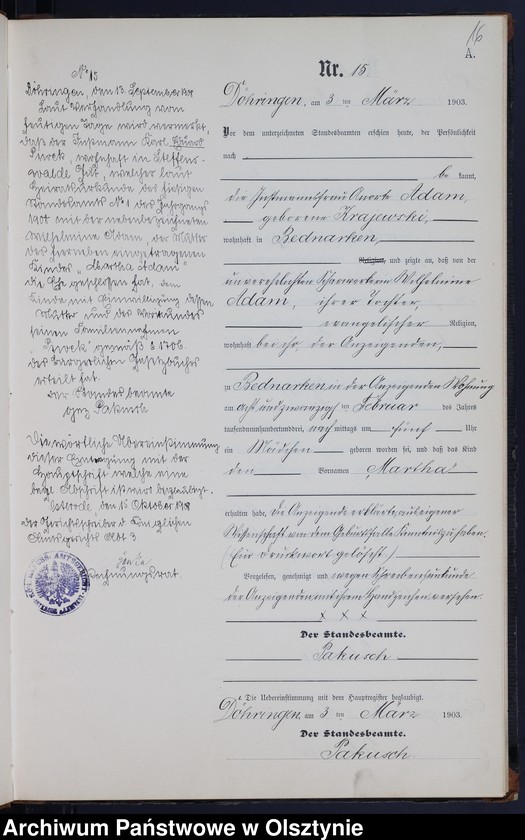 16
A.
Nr. 15
Döhringen, am 3ten März 1903.
Vor dem unterzeichneten Standesbeamten erschien heute, der Persönlichkeit
nach
be kannt,
die Instmannsfrau Adam,
geborene Krajewski,
wohnhaft in Bednarken,
Religion, und zeigte an, daß von der
unverehelichten Wilhelmine
Adam, ihrer Tochter,
evangelischer Religion,
wohnhaft bei ihr, der Anzeigenden,
zu Bednarken in der Anzeigenden Wohnung
am acht und zwanzigsten Februar des Jahres
tausendneunhundertdrei, nachmittags um fünf Uhr
ein Mädchen geboren worden sei, und daß das Kind
den Vornamen Martha
erhalten habe, die Anzeigende erklärte, aus eigener
Wissenschaft von dem Geburtsfalle Kenntnis zu haben.
(Ein Druckwort gelöscht)
Vorgelesen, genehmigt und wegen Schreibensunkunde
der Anzeigenden mit ihrem Handzeichen versehen.
x x x
Der Standesbeamte.
Pakusch
Die Uebereinstimmung mit dem Hauptregister beglaubigt.
Döhringen, am 3ten März 1903.
Der Standesbeamte.
Pakusch.
No 15
Döhringen, den 13. September
Laut Verhandlung vom
heutigen Tage wird vermerkt,
daß der Instmann Karl
wohnhaft in
walde Gut, welcher laut
Heiratsurkunde des hiesigen
Standesamts No 1 des Jahrgangs
mit der nebenbezeichneten
Wilhelmine Adam, der Mutter
des hierneben eingetragenen
Kindes "Martha Adam"
die Ehe geschlossen hat, dem
Kinde mit Einwilligung dessen
Mutter und des Vormundes
seinen Familiennamen
gemäß § 1706
des Bürgerlichen Gesetzbuches
erteilt hat.
Der Standesbeamte
gez. Pakusch
Die wörtliche Übereinstimmung
dieser Eintragung mit der
Hauptschrift welche eine
begl. Abschrift ist wird beglaubigt.
Osterode, den 15. Oktober
der Gerichtsschreiber d. Königlichen
Amtsgerichts Abt 3
Rechnungsrat
Archiwum Państwowe w Olsztynie